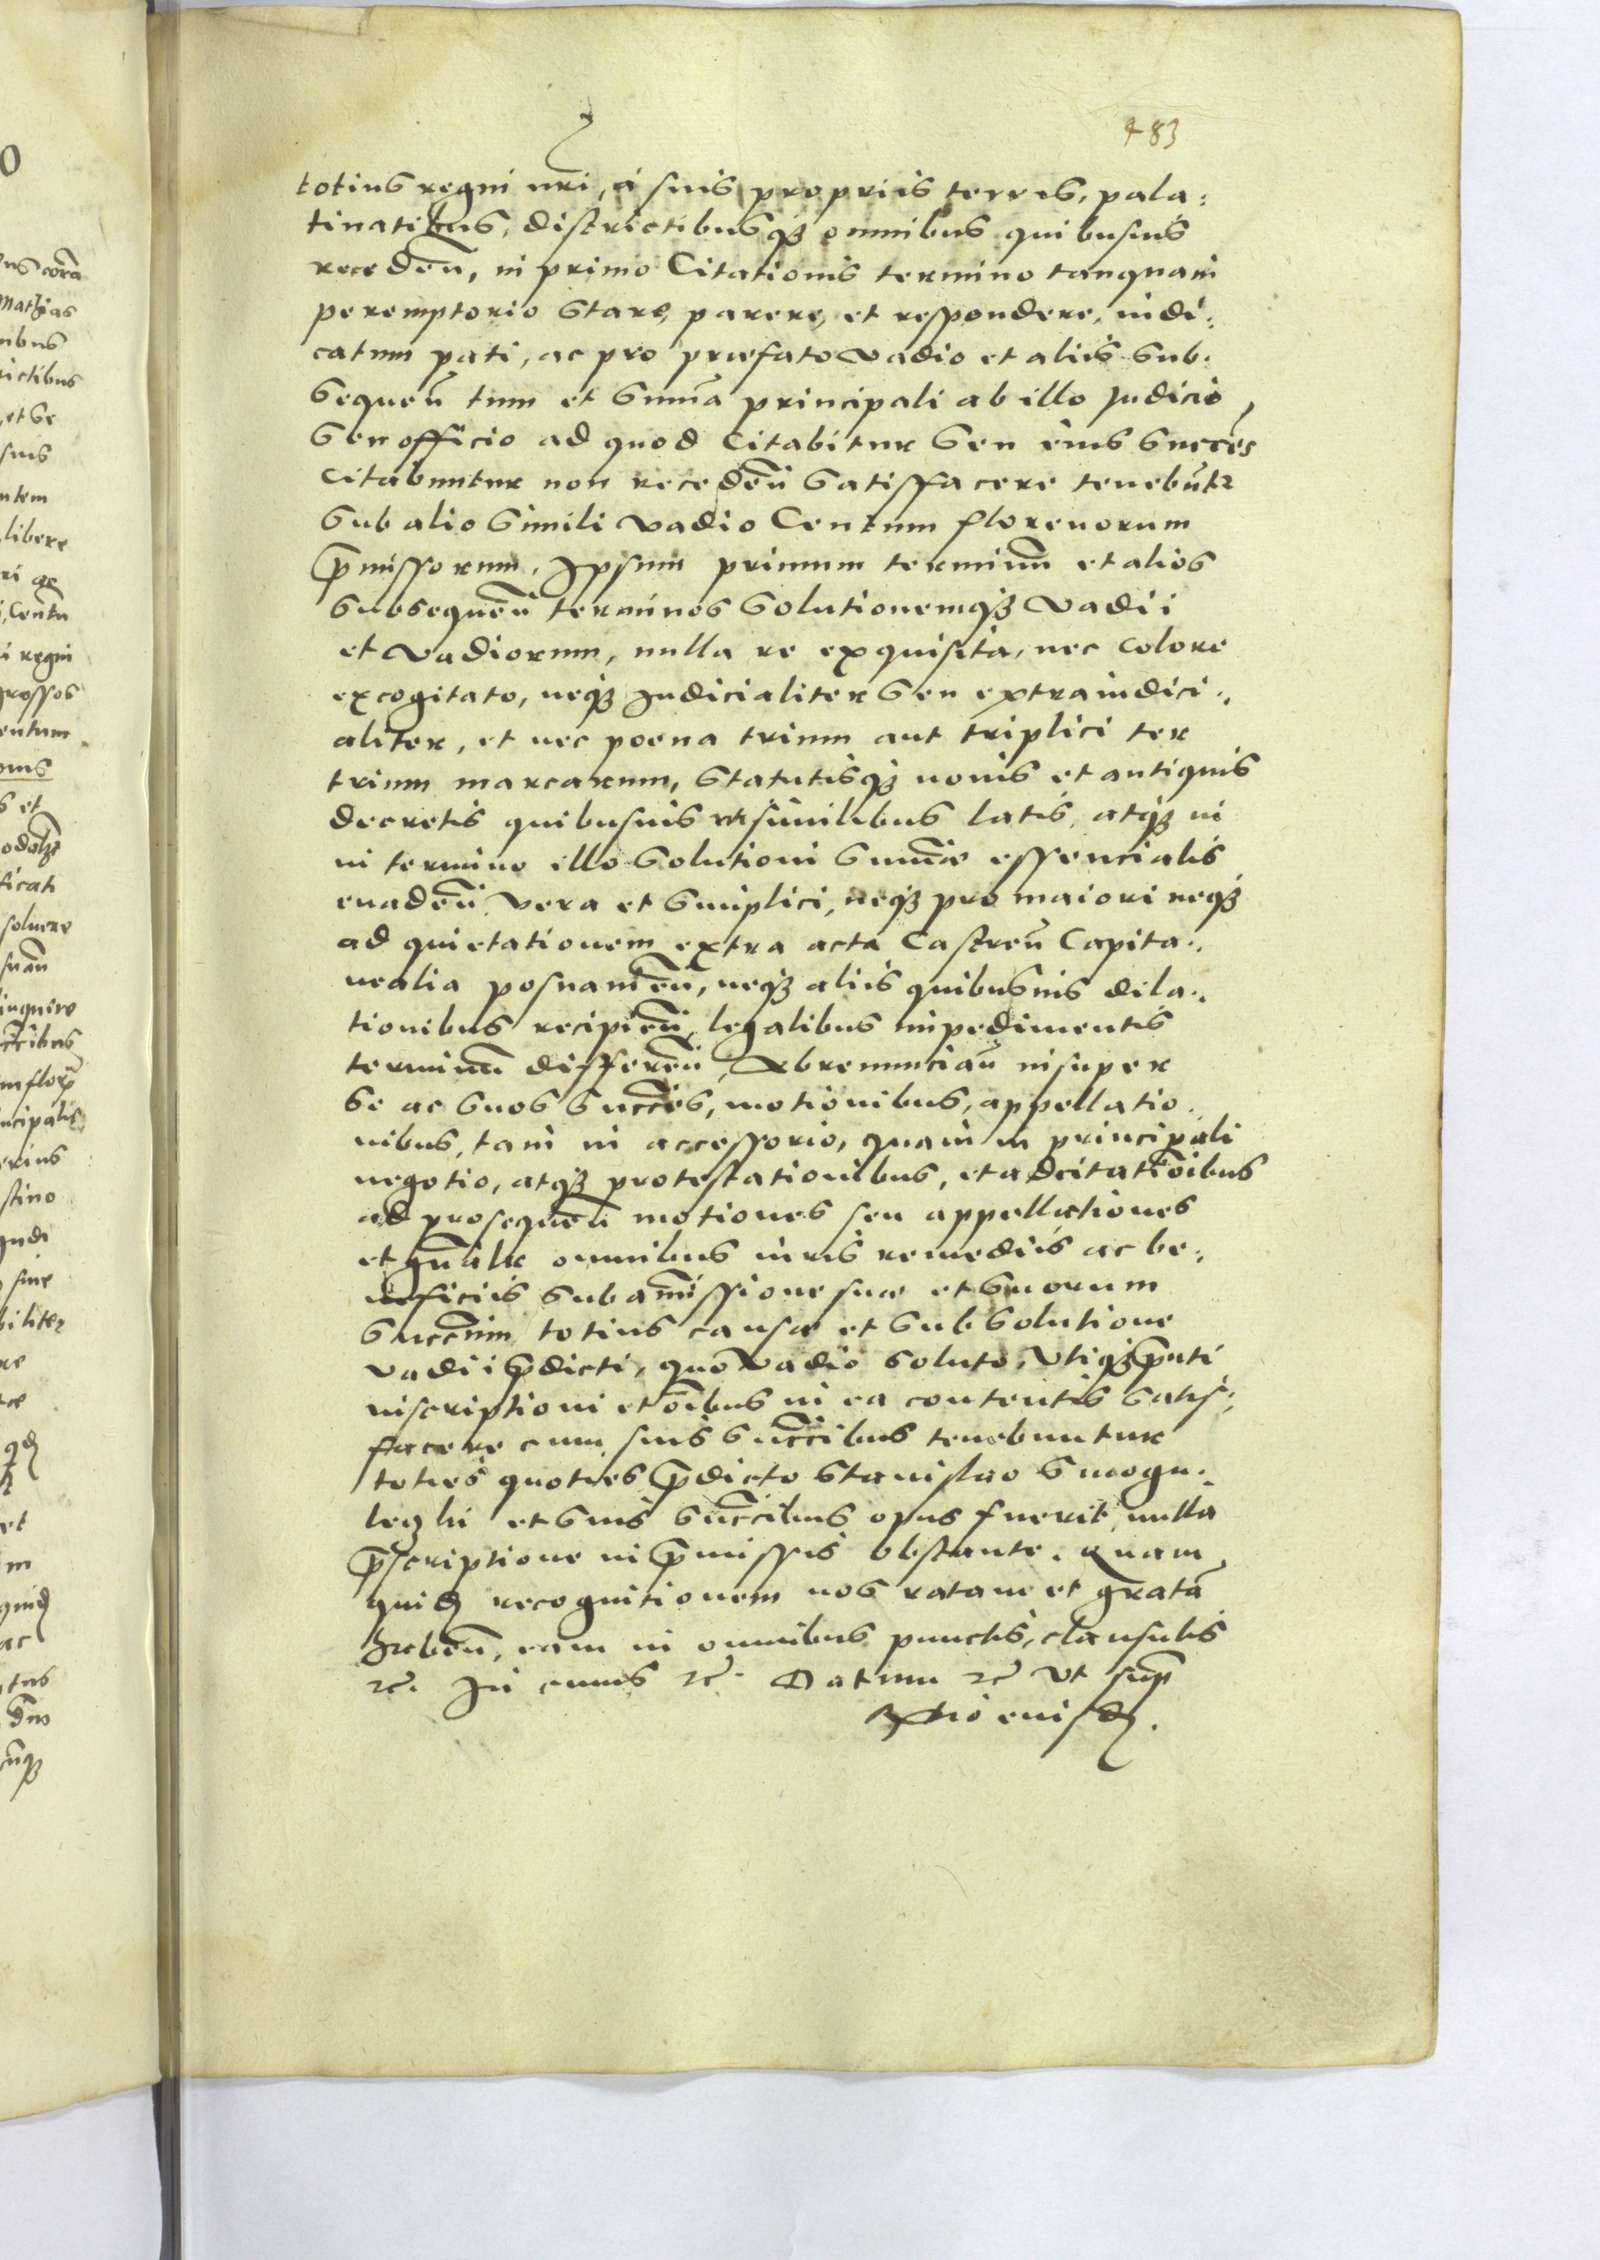 483
totius regni nri, a suis propriis terris, pala:
tinatibus, districtibusq3 omnibus quibusuis
receden̄, in primo Citationis termino tanquam
peremptorio stare, parere, et respondere, iudi:
catum pati, ac pro præfato vadio et aliis sub:
sequen̄ tum et sum̄a principali ab illo Judicio
seu officio ad quod citabitur seu eius succēs
citabuntur non receden̄ satisfacere tenebūtr
sub alio simili vadio Centum florenorum
p̄missorum. Ipsum primum terminū et alios
subsequen̄ terminos solutionemq3 vadii
et vadiorum, nulla re exquisita, nec colore
excogitato, neq3 Judicialiter seu extraiudici:
aliter, et nec poena trium aut triplici ter
trium marcarum, statutisq3 nouis et antiquis
decretis quibusuis similibus latis, atq3 in
in termino illo solutioni sum̄æ essencialis
euaden̄ vera et simplici, neq3 pro maiori neq3
ad quietationem extra acta Castren̄ Capita:
nealia posnanien̄, neq3 aliis quibusuis dila:
tionibus recipien̄, legalibus impedimentis
terminū differen̄, Abrenunciān insuper
se ac suos succēs, motionibus, appellatio:
nibus, tam in accessorio, quam in principali
negotio, atq3 protestationibus, et adcitatiōibus
ad prosequen̄ motiones seu appellationes
et gn̄alr omnibus iuris remediis ac be:
neficiis sub amissione suæ et suorum
succūm totius causæ et sub solutione
vadii p̄dicti, quo vadio soluto, vtiq3 p̄nti
inscriptioni et oībus in ea contentis satis:
facere cum suis succ̄ibus tenebuntur
toties quoties p̄dicto Stanislao Smogu:
leczki et suis succ̄ibus opus fuerit, nulla
p̄scriptione in p̄missis obstante. Quam
quid recognitionem nos ratam et gratā
haben̄, eam in omnibus punctis, clausulis
etc. In cuius etc. Datum etc vt sup̄